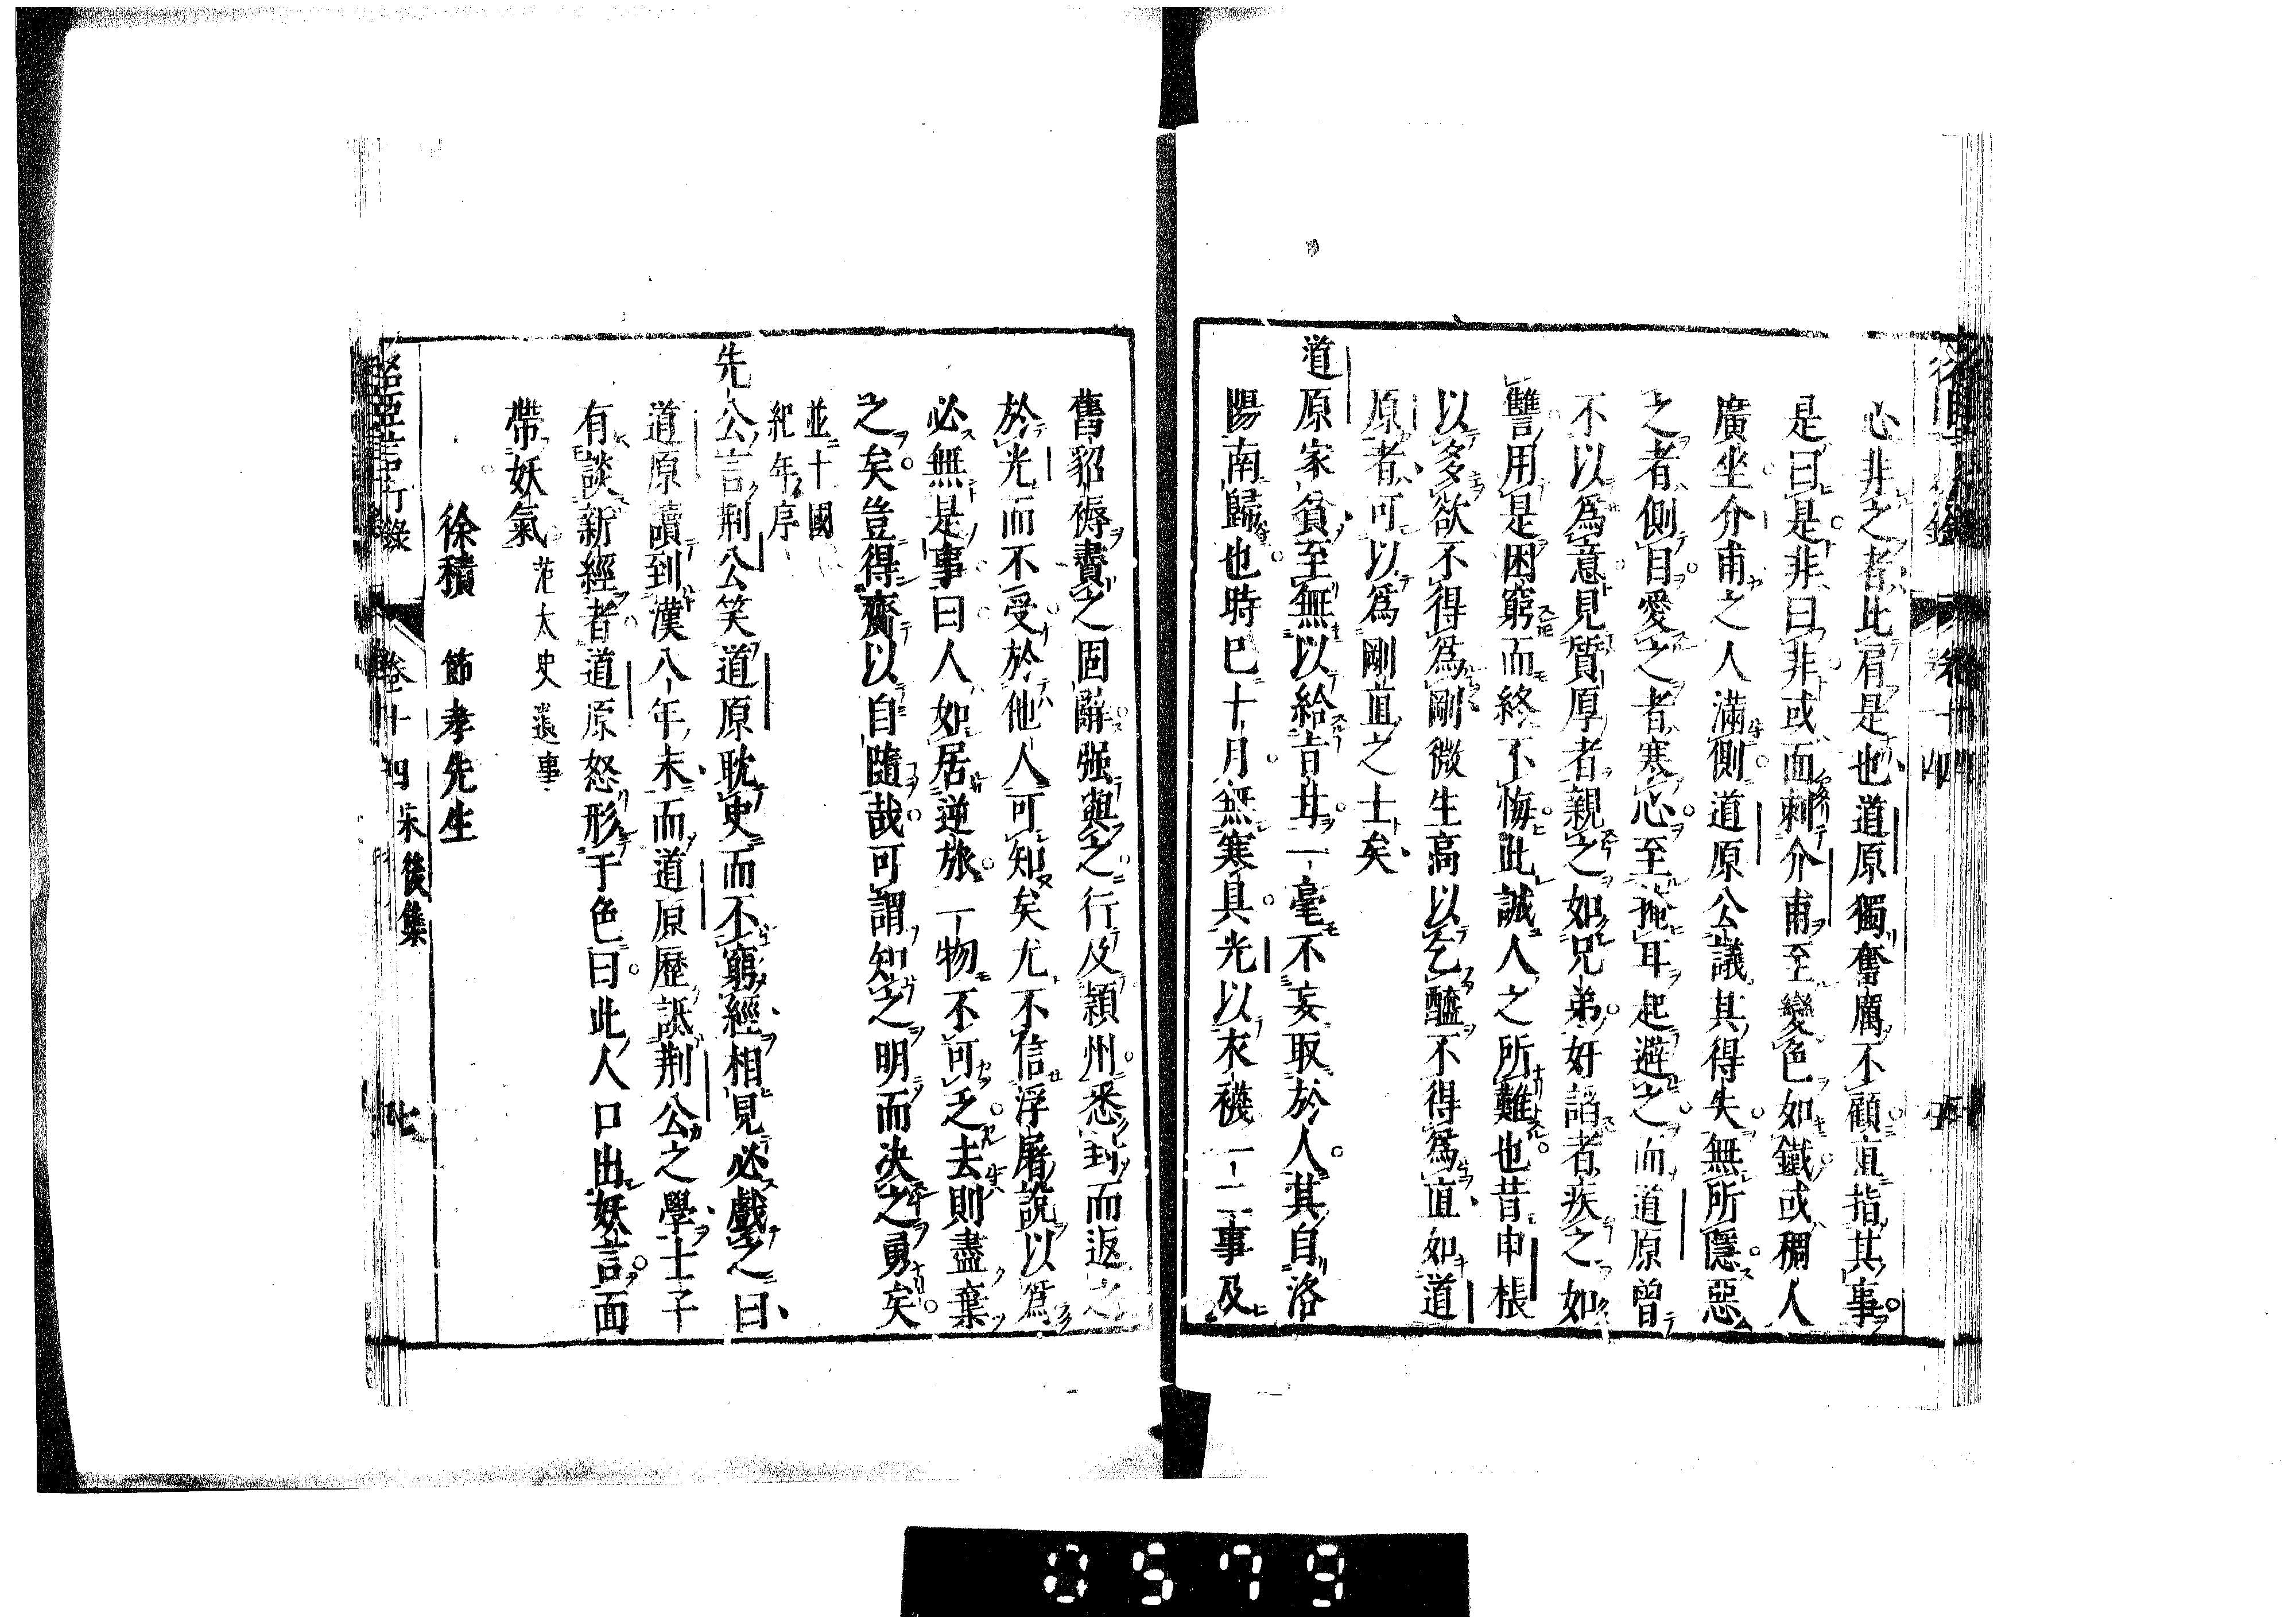 心非之者比肩是也道原獨奮厲不顧直指其事
是曰是非曰非或面刺介甫至變色如鐵或稠人
廣坐介甫之人滿側道原公議其得失無所隱惡
之者側目愛之者寒心至掩耳起避之而道原曾
不以爲意見質厚者親之如兄弟好謟者疾之如
讐用是困窮而終不悔此誠人之所難也昔申棖
以多欲不得爲剛微生高以乞醯不得爲直如道
原者可以爲剛直之士矣
道原家貧至無以給旨甘一毫不妄取於人其自洛
陽南歸也時巳十月無寒具光以衣襪一二事及
舊貂褥賮之固辭强與之行及潁州悉封而返之
於光而不受於他人可知矣尤不信浮屠說以爲
必無是事曰人如居逆旅一物不可乏去則盡棄
之矣豈得齎以自隨哉可謂知之明而決之勇矣
並十國
紀年序
先公言荆公笑道原耽史而不窮經相見必戲之曰
道原讀到漢八年未而道原歷詆荆公之學士子
有談新經者道原怒形于色曰此人口出妖言面
帶妖氣 范太史遺事
徐積 節孝先生
名臣言行錄 卷十四 宋後集 七